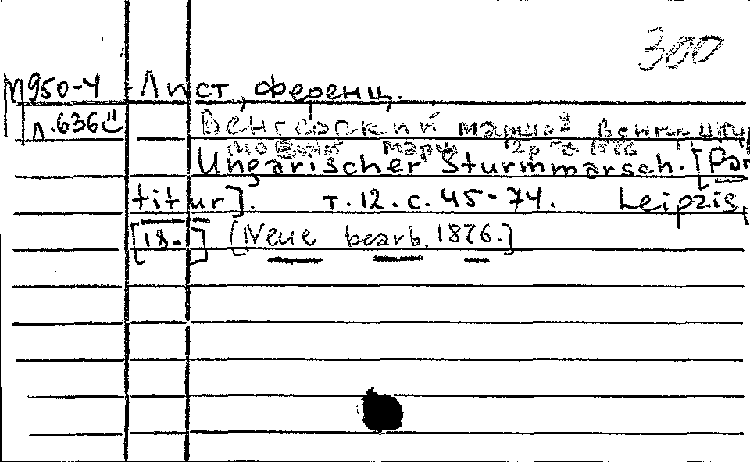 300
М950-4 Лист, Ференц.
Л.636 Венгерский марш
марш
Ungarischer Sturmmarsch. [Par
titur]. т.12. с. 45-74. Leipzig,
[18-] [Neue bearb. 1876.]